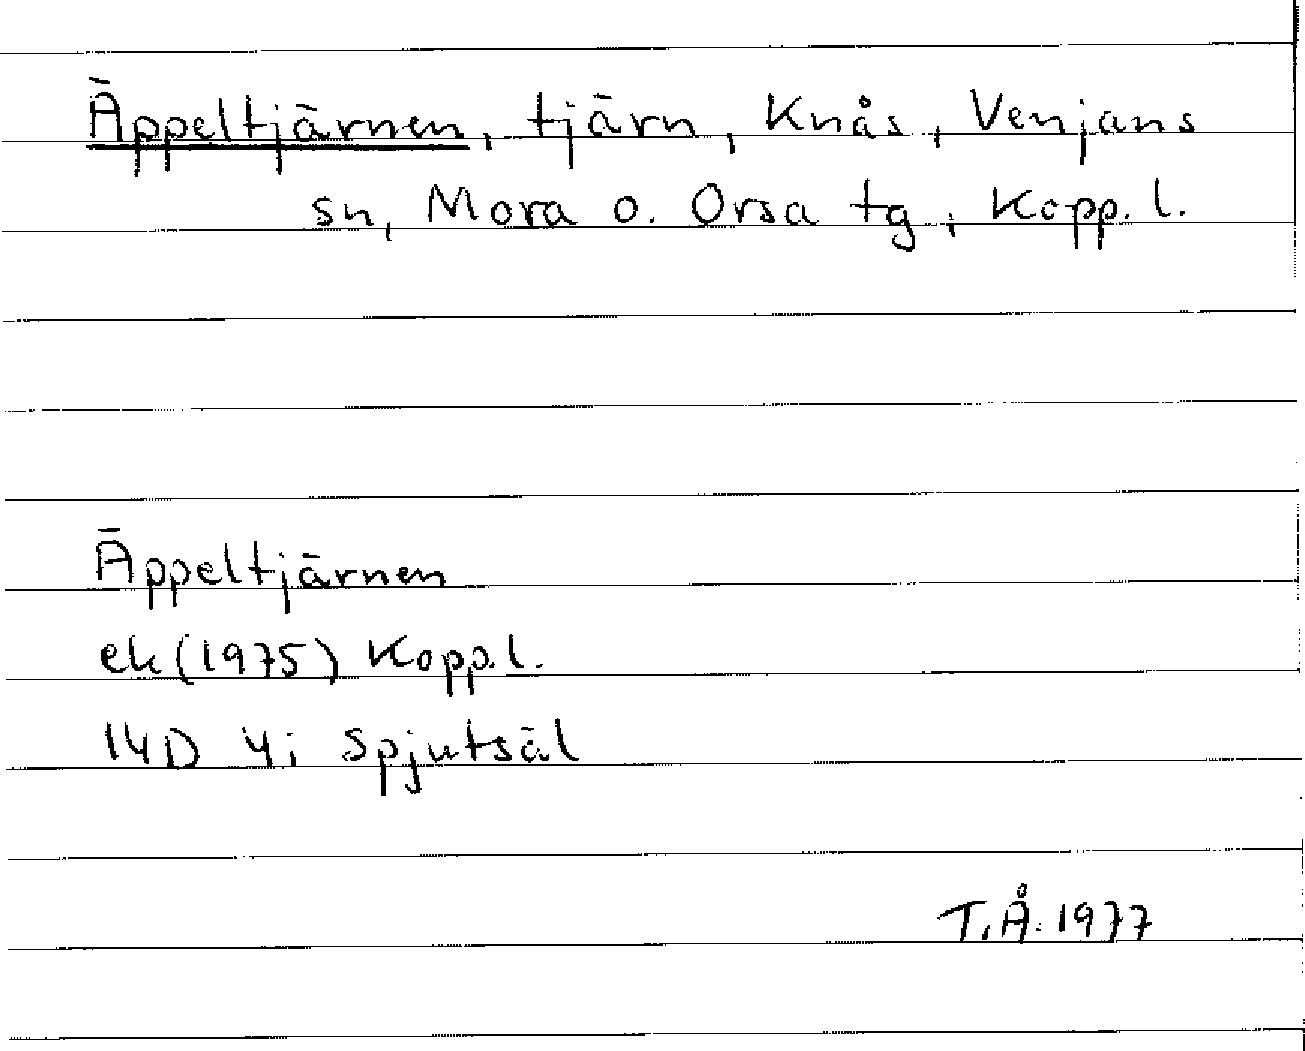 Äppeltjärnen, tjärn, Knås, Venjans
sn, Mora o. Orsa tg, Kopp. l.
Äppeltjärnen
ek (1975) Kopp. l.
14D 4i Spjutsäl
T.Å. 1977